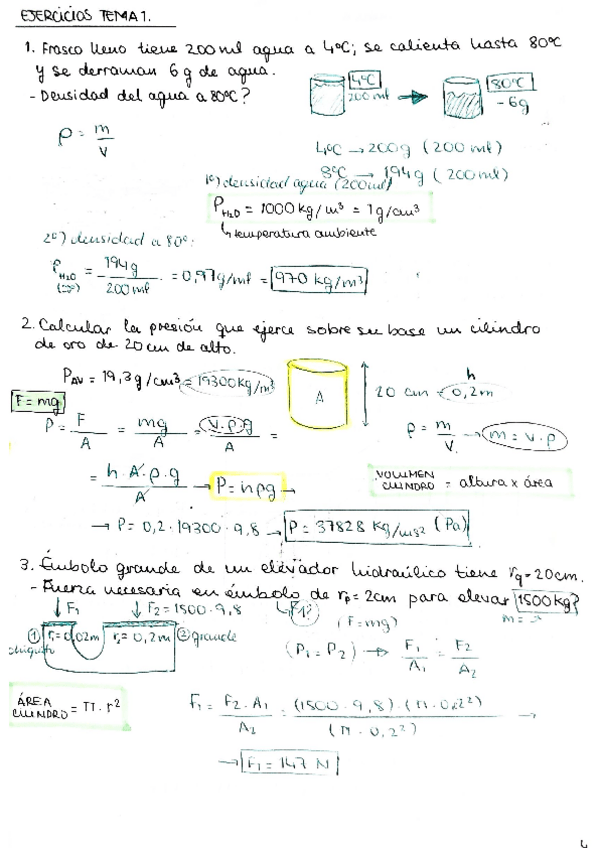 EJERCICIOS TEMA 1.
1. Frasco lleno tiene 200 ml agua a 4ºC; se calienta hasta 80ºC
y se derraman 6 g de agua.
- Densidad del agua a 80ºC?
4ºC
200 ml
80ºC
- 6g
ρ = m / V
4ºC → 200g (200 ml)
8ºC → 194g (200 ml)
1º) densidad agua (200 ml)
ρ H₂O = 1000 kg/m³ = 1g/cm³
↳ temperatura ambiente
2º) densidad a 80º:
ρ H₂O = 194 g / 200 ml = 0,97 g/ml = 970 kg/m³
2. Calcular la presión que ejerce sobre su base un cilindro
de oro de 20 cm de alto.
ρ AU = 19,3 g/cm³ = 19300 kg/m³
A
h
20 cm = 0,2m
F = mg
P = F / A = mg / A = V·ρ·g / A =
ρ = m / V → m = V·ρ
= h·A·ρ·g / A → P = hρg →
VOLUMEN CILINDRO = altura x área
→ P = 0,2 · 19300 · 9,8 → P = 37828 Kg/ms² (Pa)
3. Émbolo grande de un elevador hidráulico tiene rg = 20 cm.
- Fuerza necesaria en émbolo de rp = 2cm para elevar 1500 kg?
↓ F₁ ↓ F₂ = 1500 · 9,8
(F = mg)
m =
① r₁ = 0,02m r₂ = 0,2m ② grande
chiquito
(P₁ = P₂) → F₁ / A₁ = F₂ / A₂
ÁREA CILINDRO = π · r²
F₁ = F₂ · A₁ / A₂ = (1500 · 9,8) · (π · 0,02²) / (π · 0,2²) →
→ F₁ = 147 N